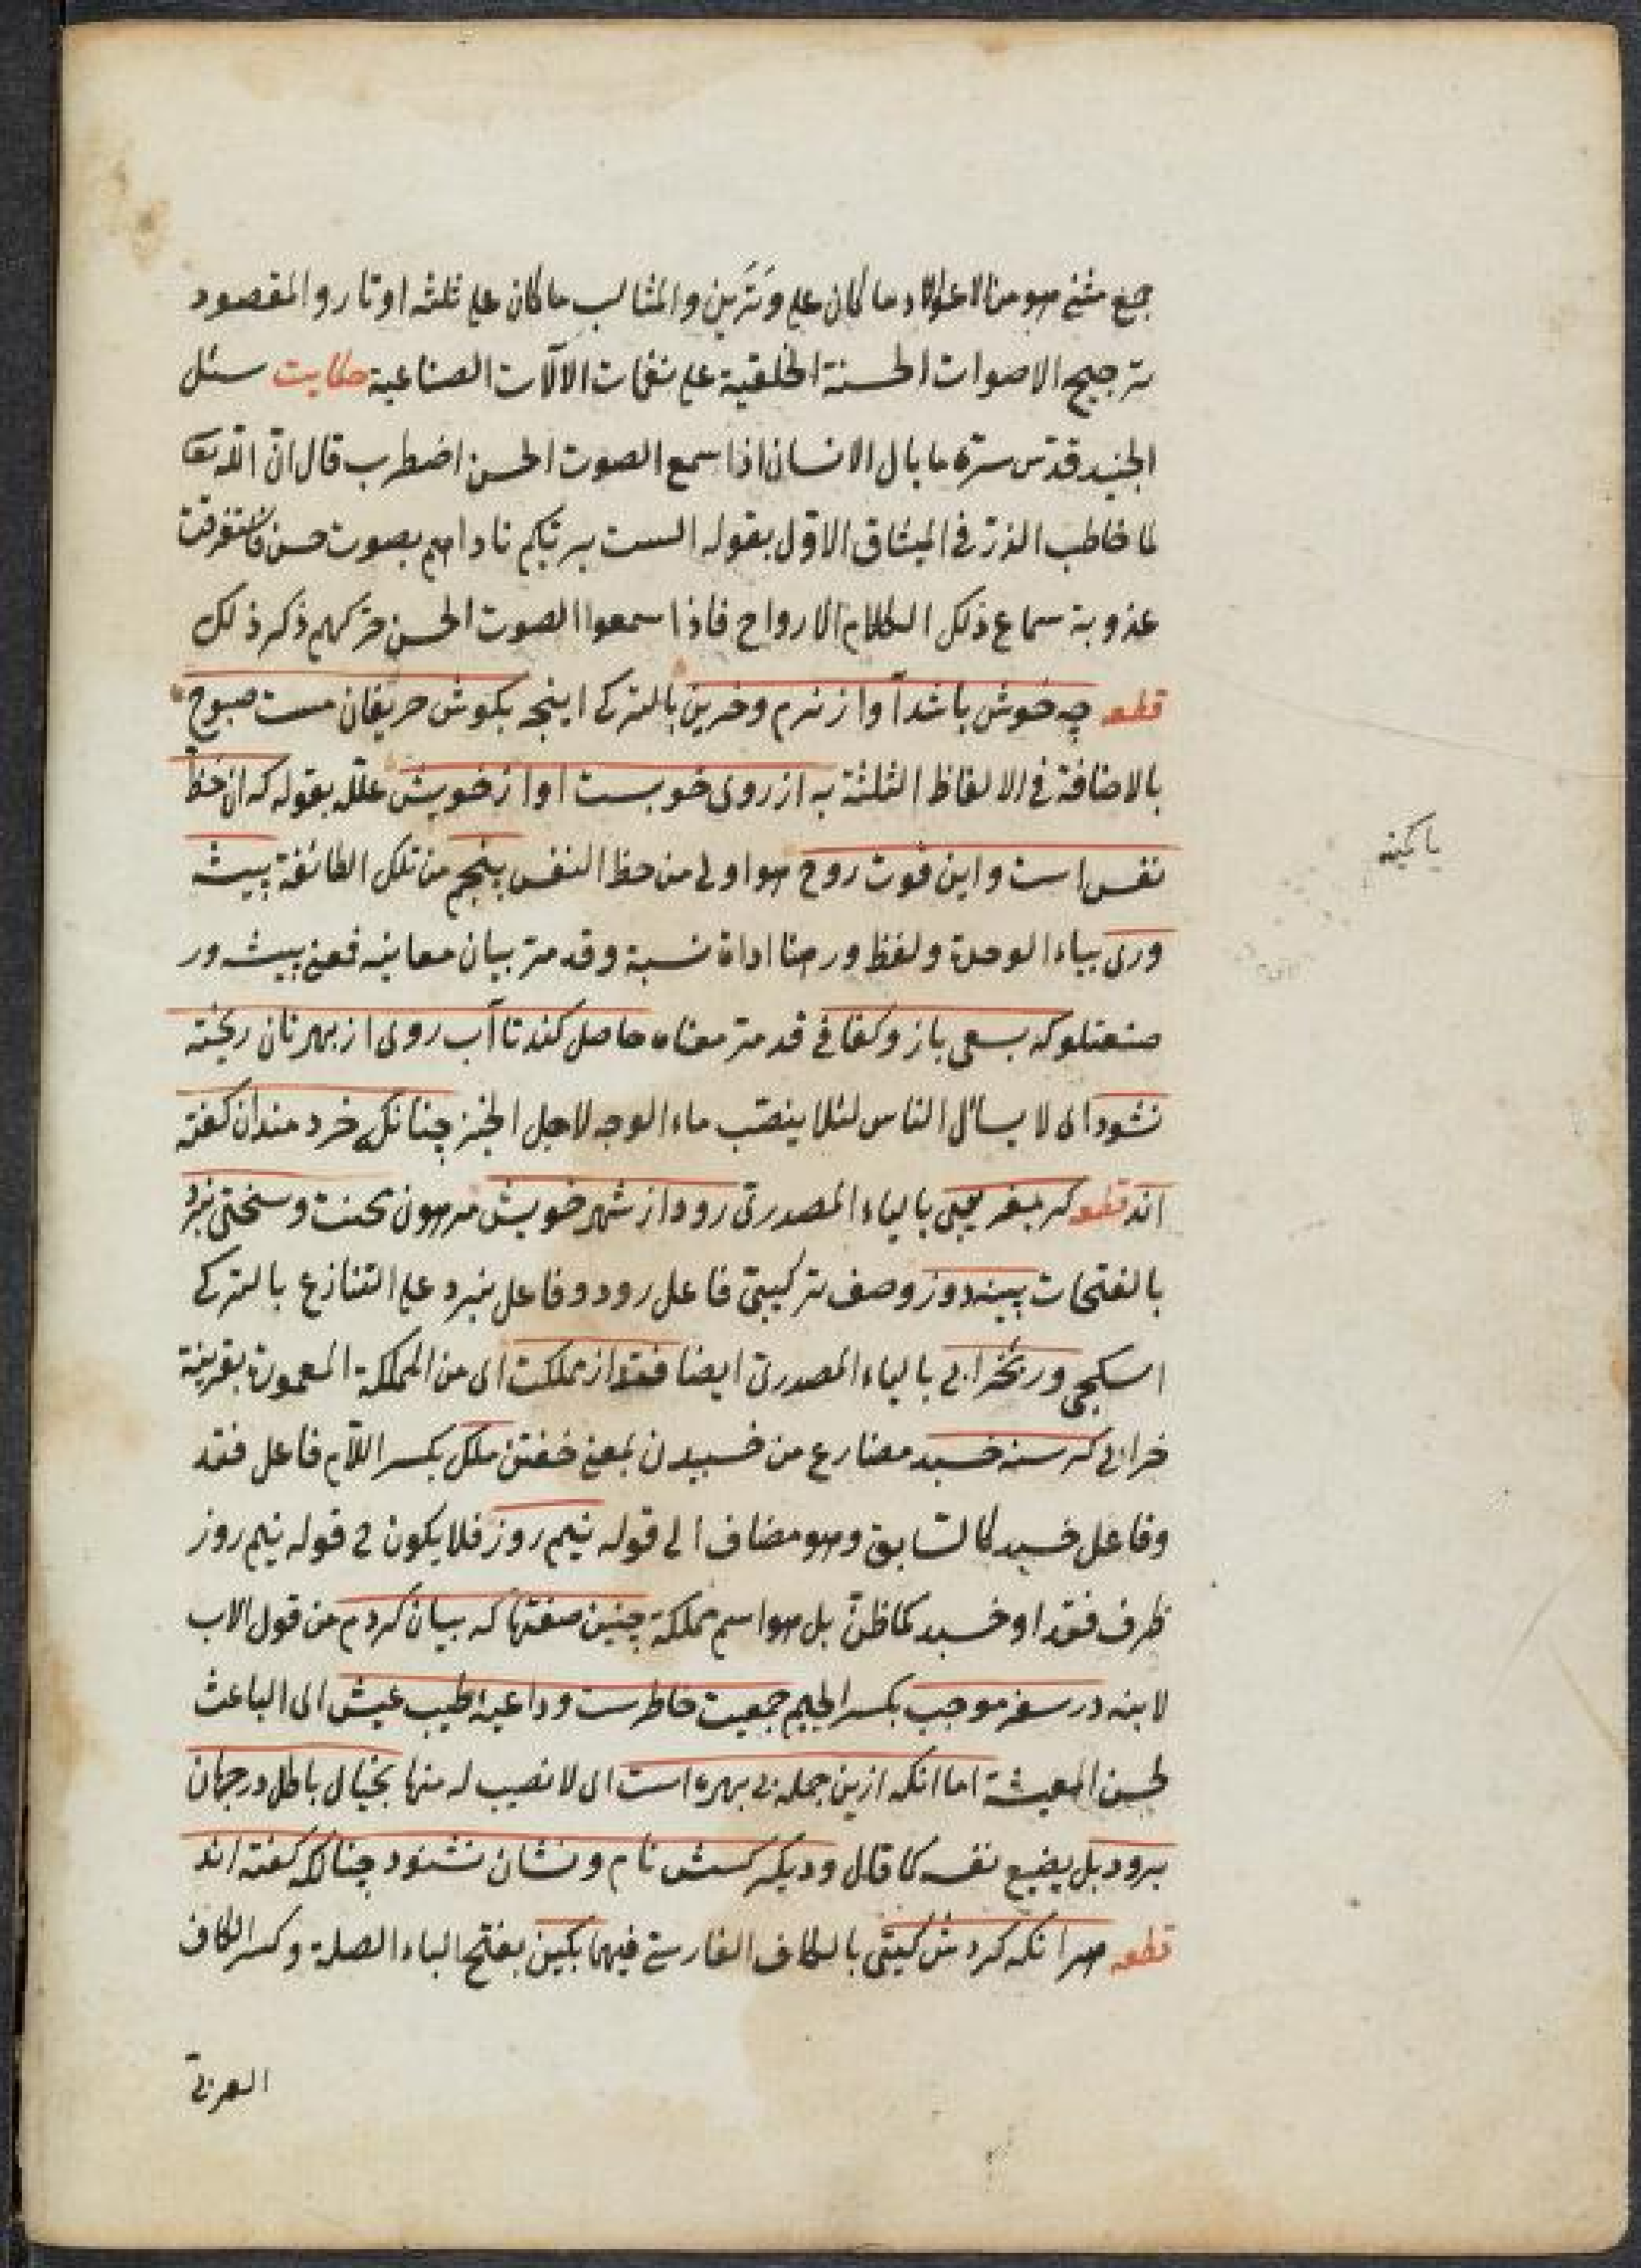 جمع مثنى وهو من الاعواد ما كان على وَتَرَين والمثالب ما كان على ثلثه اوتار والمقصود
ترجيح الاصوات الحسنة الخلقية على نغمات الآلات الصناعية حكايت سئل
الجنيد قدّس سرّه ما بال الانسان اذا سمع الصوت الحسن اضطرب قال انّ اللّه تعا
لما خاطب الذرّ في الميثاق الاوّل بقوله الست بربّكم ناداهم بصوت حسن فاستغرقت
عذوبة سماع ذلك الكلام الارواح فاذا سمعوا الصوت الحسن حرّكهم ذكر ذلك
قطعه چه خوش باشد آواز نرم وحزين بالتركى اينجه بكوش حريفان مست صبوح
بالاضافة في الالفاظ الثلثة به از روى خوبست اواز خويش علّله بقوله كه ان حظّ
نفس است واين قوت روح هو اولى من حظ النفس پنجم من تلك الطائفة پيشه
ورى بياء الوحدة ولفظ ور هنا اداة نسبة وقد مرّ بيان معانيه فمعنى پيشه ور
صنعتلو كه بسعى بازو كفافى قد مرّ معناه حاصل كند تا آب روى از بهر نان ريخته
نشود اى لا يسأل الناس لئلا ينصّب ماء الوجه لاجل الخبز چنانكه خردمندان كفته
اند قطعه كر بغريبى بالياء المصدرى رود از شهر خويش مرهون محنت وسختى نبرد
بالفتحات پينه دوز وصف تركيبىّ فاعل رود وفاعل نبرد على التنازع بالتركى
اسكجى ور بخرابى بالياء المصدرى ايضا فتد از مملكت اى من المملكة المعمورة بقرينة
خرابى كرسنه خسبد مضارع من خسبيدن بمعنى خفتن ملك بكسر اللّام فاعل فتد
وفاعل خسبد كالسّابق وهو مضاف الى قوله نيم روز فلا يكون في قوله نيم روز
ظرف فتد او خسبد كما ظنّ بل هو اسم مملكة چنين صفتها كه بيان كردم من قول الاب
لابنه در سفر موجب بكسر الجيم جمعيت خاطرست وداعيه طيب عيش اى الباعث
لحسن المعيشة اما انكه ازين جمله بى بهره است اى لا نصيب له منها بخيال باطل در جهان
برود بل يضيع نفسه كما قال وديكر كسش نام ونشان نشنود چنانكه كفته اند
قطعه هر انكه كردش كيتى بالكاف الفارسى فيهما بكين بفتح الباء الصلة وكسر الكاف
العربىّ